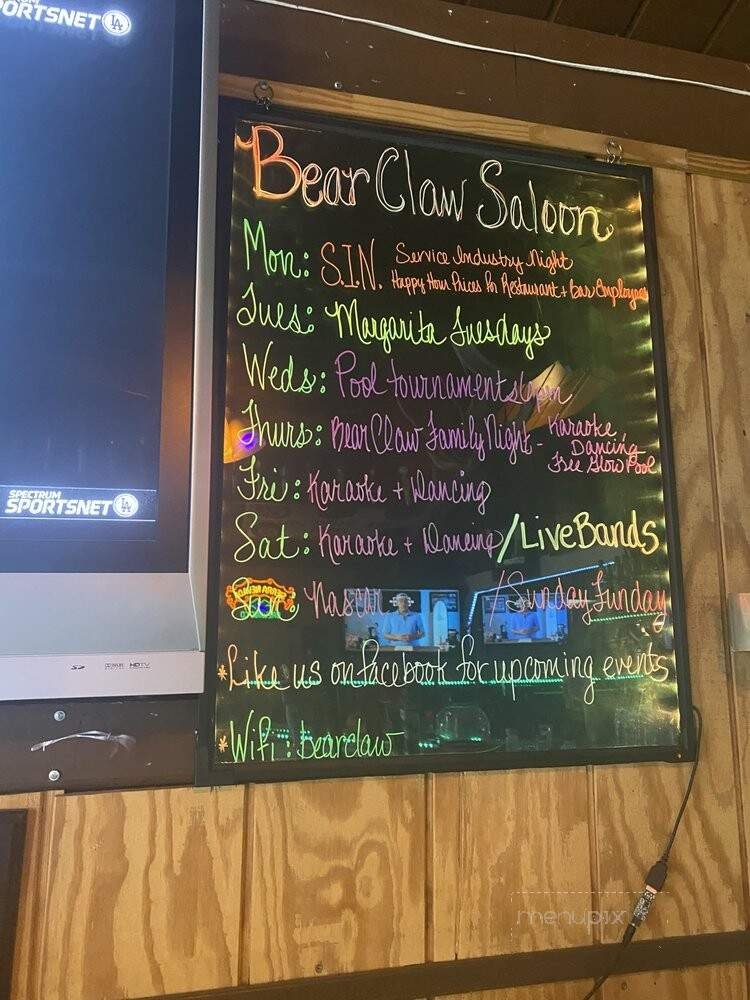 SPORTSNET LA
Bear Claw Saloon
Mon: S.I.N. Service Industry Night
Happy Hour Prices for Restaurant + Bar Employees
Tues: Margarita Tuesdays
Weds: Pool tournaments 6pm
Thurs: Bear Claw Family Night - Karaoke
Dancing
Free Glow Pool
Fri: Karaoke + Dancing
Sat: Karaoke + Dancing / Live Bands
Sun: Nascar / Sunday Funday
*Like us on facebook for upcoming events
*Wifi: bearclaw
SPECTRUM
SPORTSNET LA
HDTV
menupix